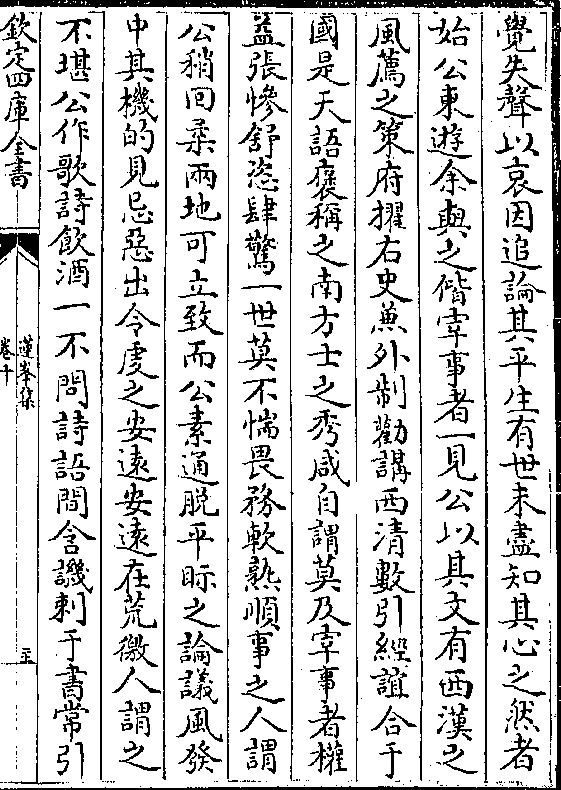 覺失聲以哀因追論其平生有世未盡知其心之然者
始公東遊余與之偕宰事者一見公以其文有西漢之
風薦之策府擢右史兼外制勸講西清數引經誼合于
國是天語褒稱之南方士之秀咸自謂莫及宰事者權
益張慘舒恣肆驚一世莫不惴畏務軟熟順事之人謂
公稍回柔兩地可立致而公素通脱平眎之論議風發
中其機的見忌惡出令䖍之安遠安遠在荒徼人謂之
不堪公作歌詩飲酒一不問詩語間含譏刺于書常引
欽定四庫全書
蓮峯集
卷十